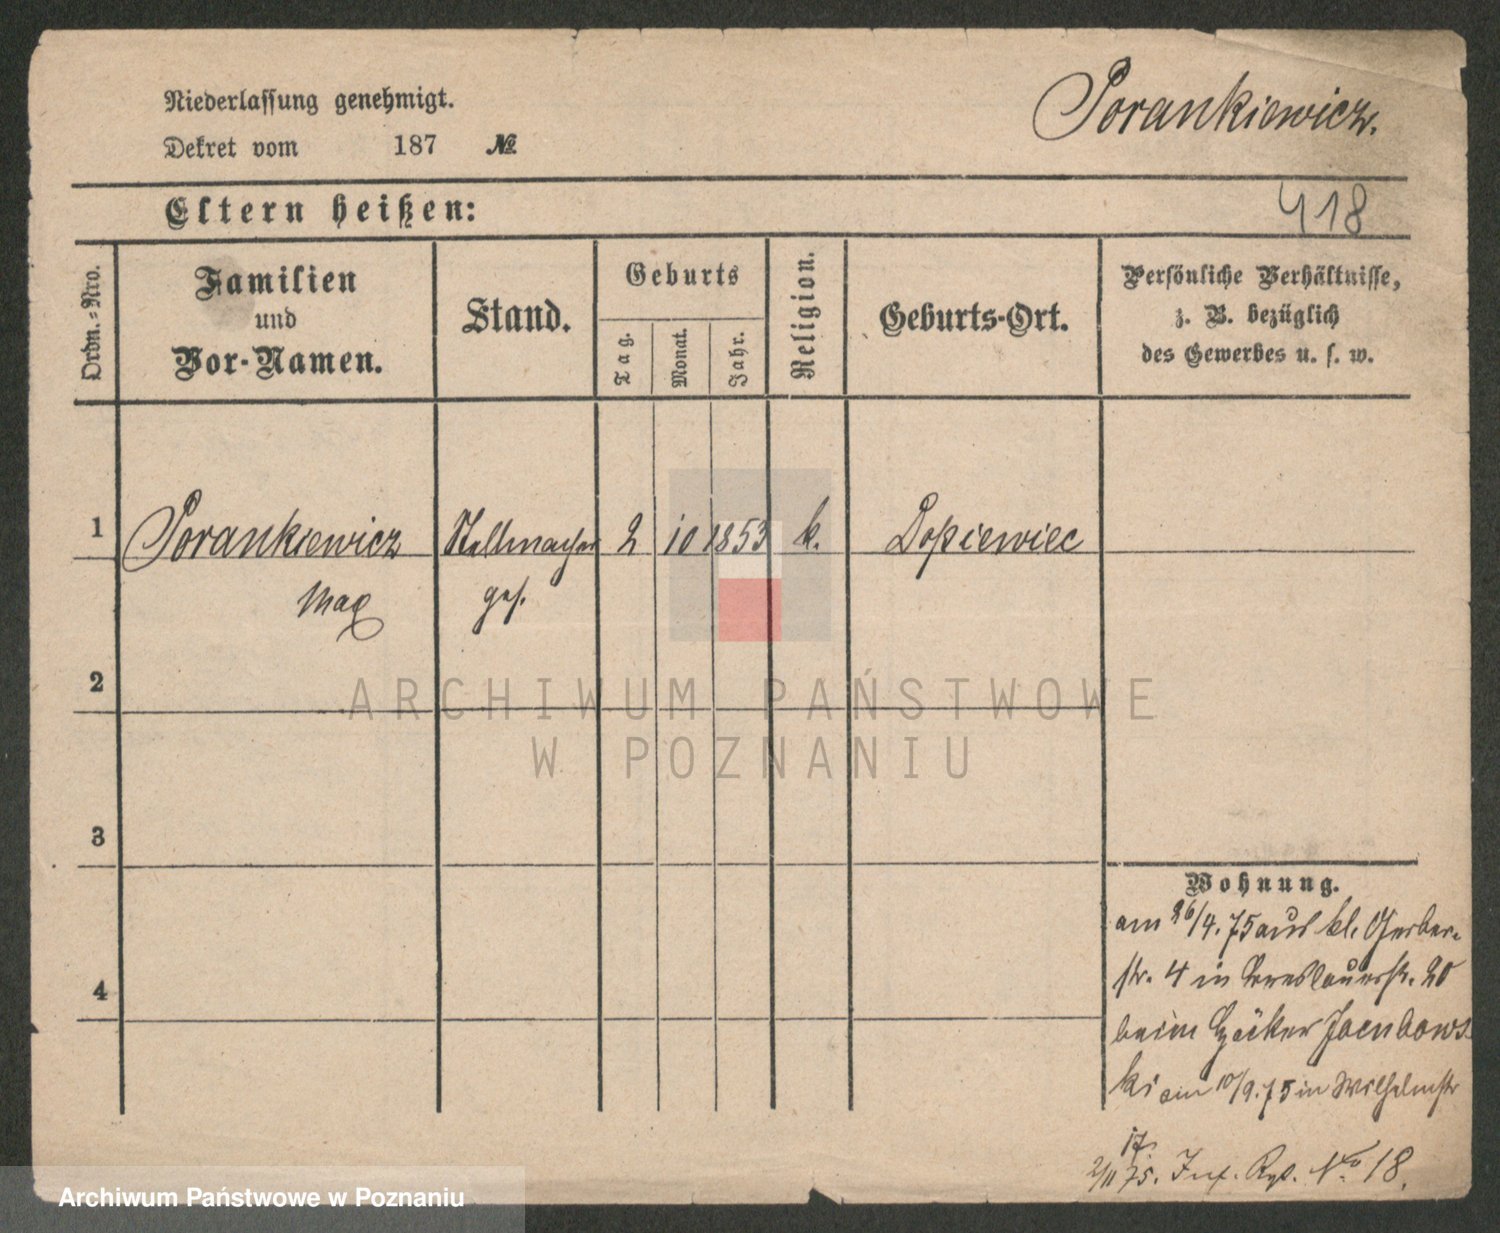 Niederlassung genehmigt.
Dekret vom 187 №
Porankiewicz.
Eltern heißen:
418
Ordn.=Nro.
Familien
und
Vor-Namen.
Stand.
Geburts
Tag.
Monat.
Jahr.
Religion.
Geburts-Ort.
Persönliche Verhältnisse,
z. B. bezüglich
des Gewerbes u. s. w.
1 Porankiewicz Stellmacher 2 10 1853 k. Dopiewiec
Max ges.
2
3
4
ARCHIWUM PAŃSTWOWE
W POZNANIU
Wohnung.
am 26/4. 75 aus kl. Gerber-
str. 4 in Breslauerstr. 20
beim Häcker
ki am 10/9. 75 in Wilhelmstr
17.
2/11 75. Inf. Rgt. No 18.
Archiwum Państwowe w Poznaniu